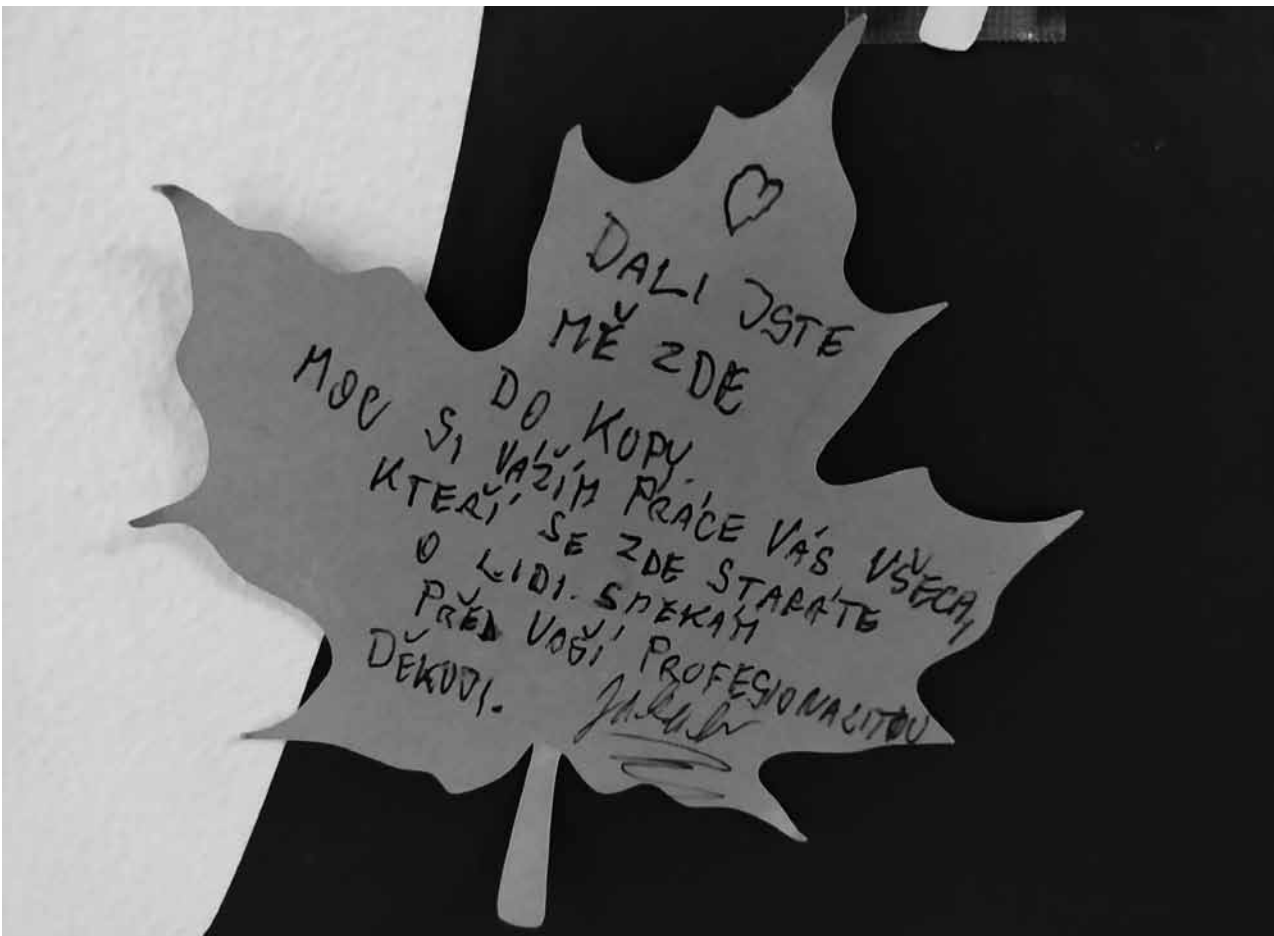 DALI JSTE
MĚ ZDE
DO KOPY.
MOC SI VÁŽÍM PRÁCE VÁS VŠECH,
KTEŘÍ SE ZDE STARÁTE
O LIDI. SMEKÁM
PŘED VAŠÍ PROFESIONALITOU
DĚKUJI.